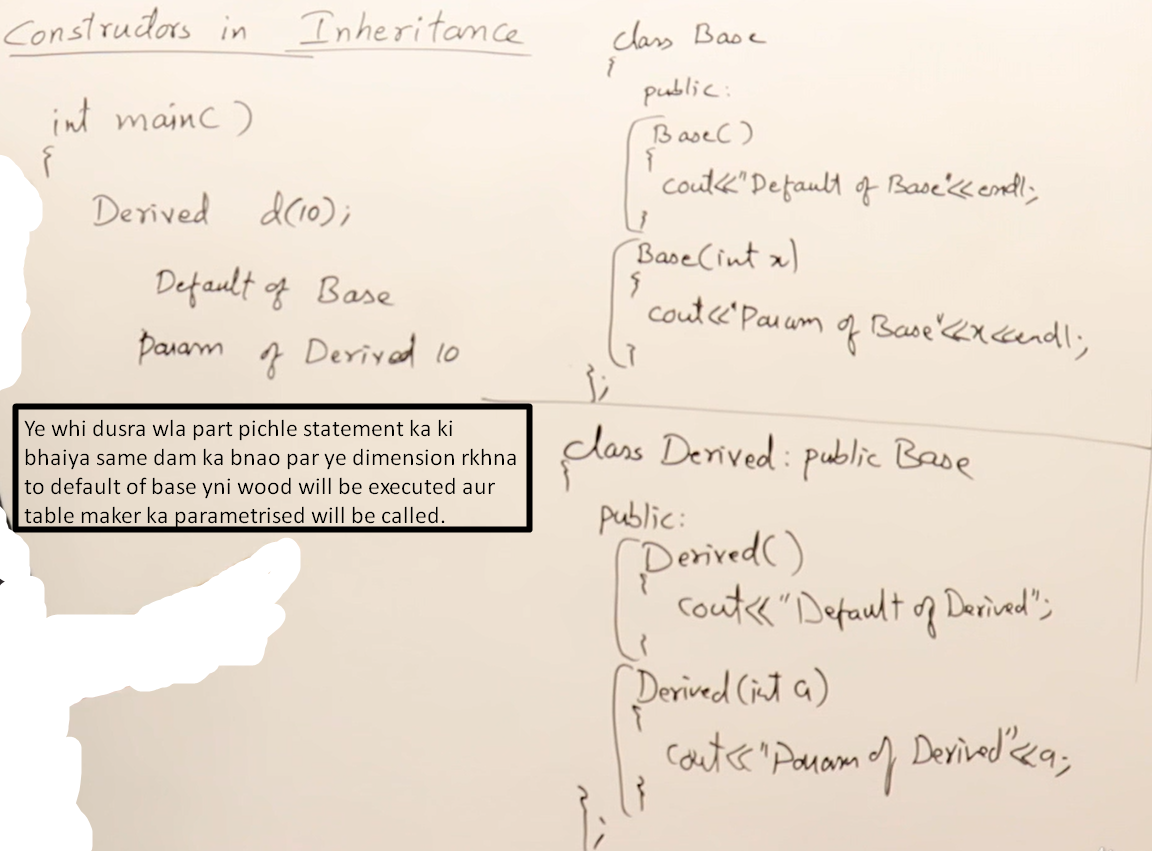 Constructors in Inheritance
int main()
{
Derived d(10);
Default of Base
Param of Derived 10
Ye whi dusra wla part pichle statement ka ki
bhaiya same dam ka bnao par ye dimension rkhna
to default of base yni wood will be executed aur
table maker ka parametrised will be called.
class Base
{
public:
Base()
{
cout<<"Default of Base"<<endl;
}
Base(int x)
{
cout<<"Param of Base"<<x<<endl;
}
};
class Derived : public Base
{
public:
Derived()
{
cout<<"Default of Derived";
}
Derived(int a)
{
cout<<"Param of Derived"<<a;
}
};